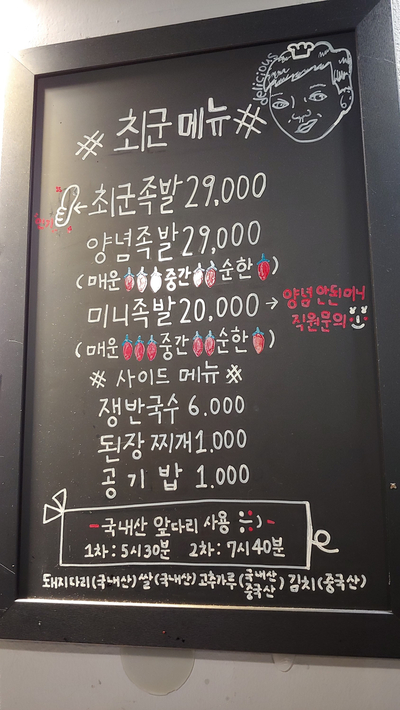 delicious
# 최군 메뉴 #
인기
← 최군족발 29,000
양념족발 29,000
(매운 중간 순한)
미니족발 20,000 → 양념 안된 미니
직원문의
(매운 중간 순한)
# 사이드 메뉴 #
쟁반국수 6.000
된장찌개 1.000
공기밥 1.000
- 국내산 앞다리 사용 :) -
1차 : 5시30분 2차 : 7시40분
돼지다리(국내산) 쌀(국내산) 고추가루(국내산 중국산) 김치(중국산)